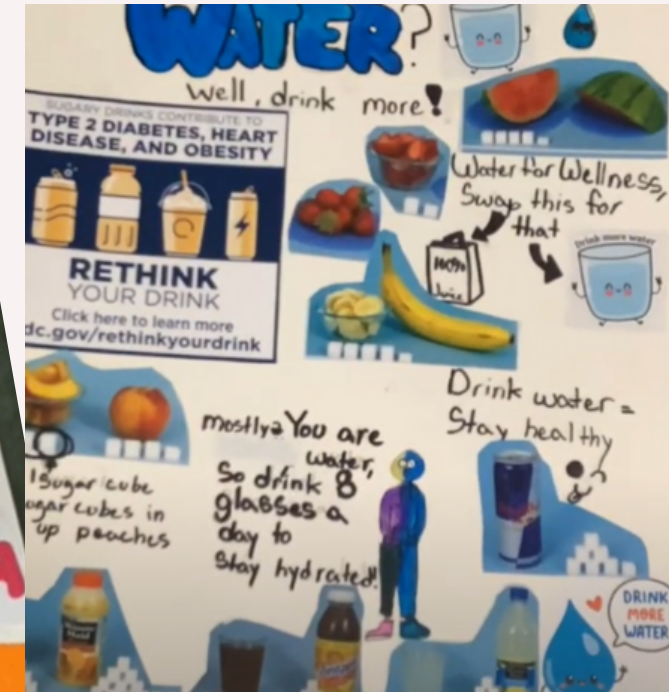 WATER?
Well, drink more!
SUGARY DRINKS CONTRIBUTE TO
TYPE 2 DIABETES, HEART
DISEASE, AND OBESITY
RETHINK
YOUR DRINK
Click here to learn more
dc.gov/rethinkyourdrink
Water for Wellness,
Swap this for
that
100%
Juice
Drink more water
Drink water =
Stay healthy
mostly You are
water,
So drink 8
glasses a
day to
Stay hydrated!
1 Sugar cube
ugar cubes in
up peaches
Minute
Maid
DRINK
MORE
WATER